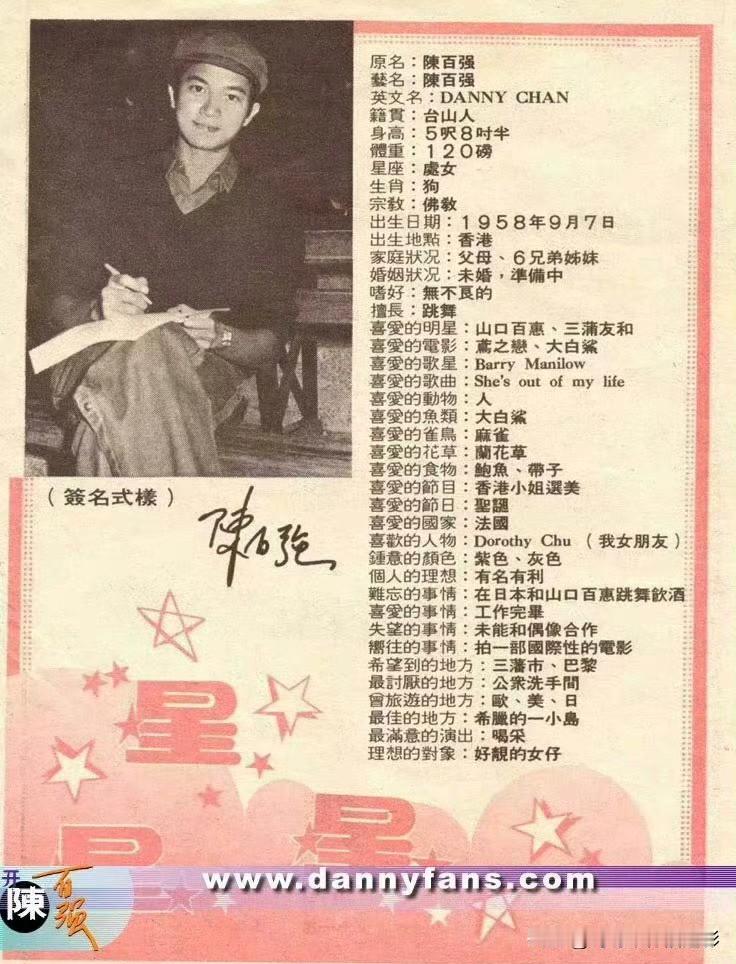 原名：陳百强
藝名：陳百强
英文名：DANNY CHAN
籍貫：台山人
身高：5呎8吋半
體重：120磅
星座：處女
生肖：狗
宗教：佛教
出生日期：1958年9月7日
出生地點：香港
家庭狀況：父母、6兄弟姊妹
婚姻狀况：未婚，準備中
嗜好：無不良的
擅長：跳舞
喜愛的明星：山口百惠、三蒲友和
喜愛的電影：鳶之戀、大白鯊
喜愛的歌星：Barry Manilow
喜愛的歌曲：She's out of my life
喜愛的動物：人
喜愛的魚類：大白鯊
喜愛的雀鳥：麻雀
喜愛的花草：蘭花草
喜愛的食物：鮑魚、帶子
喜愛的節目：香港小姐選美
喜愛的節日：聖誕
喜愛的國家：法國
喜歡的人物：Dorothy Chu（我女朋友）
鍾意的顏色：紫色、灰色
個人的理想：有名有利
難忘的事情：在日本和山口百惠跳舞飲酒
喜愛的事情：工作完畢
失望的事情：未能和偶像合作
嚮往的事情：拍一部國際性的電影
希望到的地方：三藩市、巴黎
最討厭的地方：公衆洗手間
曾旅遊的地方：歐、美、日
最佳的地方：希臘的一小島
最滿意的演出：喝采
理想的對象：好靚的女仔
（簽名式樣）
陳百强
星
星
星
陳百强
www.dannyfans.com